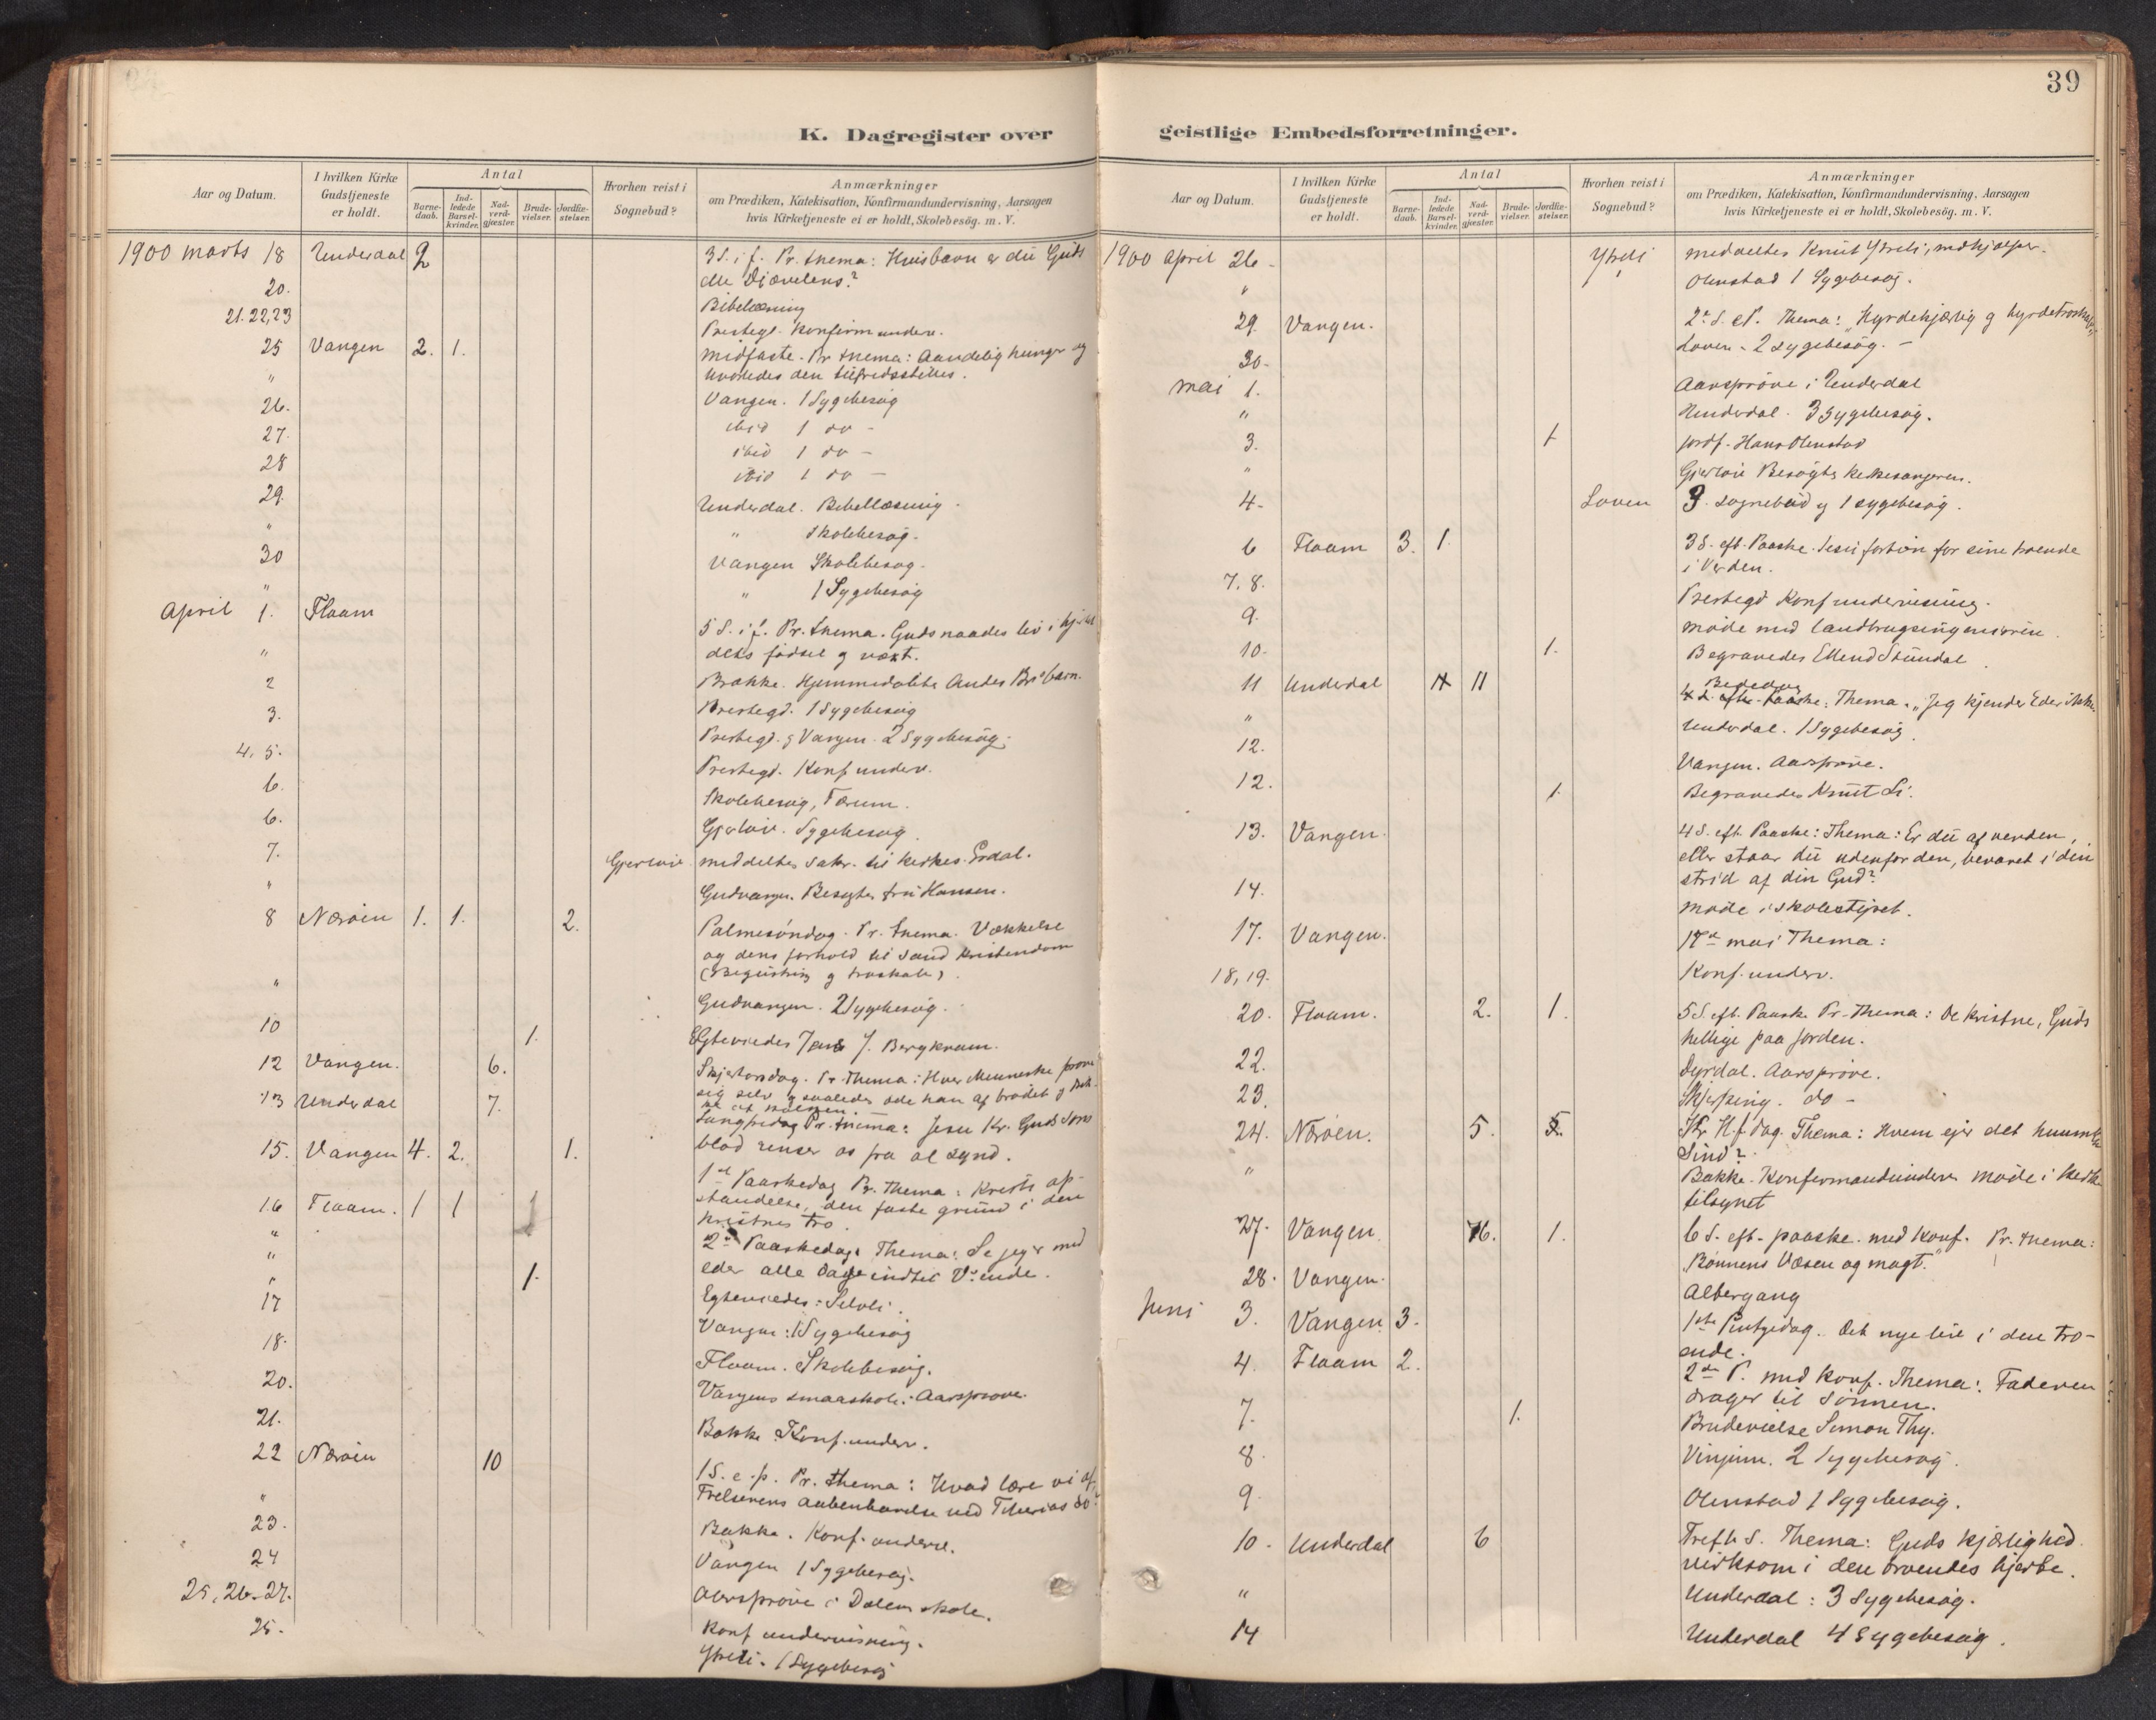 39
K. Dagregister over geistlige Embedsforretninger.
Aar og Datum.
I hvilken Kirke Gudstjeneste er holdt.
Antal
Barne-daab.
Ind-ledede Barsel-kvinder.
Nad-verd-gjæster.
Brude-vielser.
Jordfæ-stelser.
Hvorhen reist i Sognebud?
Anmærkninger
om Prædiken, Katekisation, Konfirmandundervisning, Aarsagen
hvis Kirketjeneste ei er holdt, Skolebesög. m. V.
1900 marts 18 Underdal 2 3 S. i f. Pr. thema: Hvis barn er du Guds
eller Djævelens?
20. Bibellæsning
21. 22, 23 Prestegd. Konfirm underv.
25 Vangen 2. 1. Midfaste. Pr thema: Aandelig hunger og
hvorledes den tilfredsstilles.
" Vangen. 1 Sygebesøg
26. ibid 1 do -
27. ibid 1 do -
28 ibid 1 do -
29. Underdal. Bibellæsning.
" " Skolebesøg.
30 Vangen Skolebesøg.
" " 1 Sygebesøg
April 1. Flaam 5 S. i f. Pr. thema. Guds naades liv i hjertet
dets fødsel g vækst.
" Brække. Hjemmedøbte Anders barn.
2 Prestegd. 1 Sygebesøg
3. Prestegd. g Vangen. 2 Sygebesøg.
4, 5. Prestegd. Konf underv.
6. Skolebesøg,
6. Gjerløw. Sygebesøg.
7. Gjerløw meddeltes sakr. til kirkes.
" Gudvangen. Besøgtes fru Hansen.
8 Nærøen 1. 1. 2. Palmesøndag. Pr. thema. Vækkelse
og dens forhold til sand kristendom
(Begeistring g troskab).
" Gudvangen. 2 Sygebesøg.
10 1. Egteviedes Jens J. Bergkvam.
12 Vangen. 6. Skjertorsdag. Pr. thema: Hver Menneske prøve
sig selv g saaledes æde han af brødet g
13 Underdal 7. Langfredag Pr. thema: Jesu Kr. Guds Søns
blod renser os fra al synd.
15. Vangen 4. 2. 1. 1ste Paaskedag Pr. Thema: Kristi op-
standelse, den faste grund i den
kristnes tro.
16 Flaam. 1 1 1 2den Paaskedag. Thema: Se jeg er med
eder alle dage indtil V. ende.
" 1. Egteviedes:
" Vangen: 1 Sygebesøg
17 Flaam. Skolebesøg.
18. Vangens smaaskole: Aarsprøve.
20.
21. Bakke Konf. underv.
22 Nærøen 10 1 S. e. p. Pr. thema: Hvad lære vi af
Frelserens aabenbarelse ved Tiberias Sø?
" Bakke. Konf. underv.
23. Vangen 1 Sygebesøg.
24 Aarsprøve i Dalens skole.
25, 26. 27. Konf undervisning.
25. Ytreli. 1 Sygebesøg
1900 April 26. Ytreli meddeltes Knut Ytreli,
" Olmstad 1 Sygebesøg.
29. Vangen. 2. S. e P. Thema: "Hyrdekjærlig g hyrdetroskap"
30. Loven. 2 sygebesøg. -
Mai 1. Aarsprøve i Underdal
" Underdal. 3 sygebesøg.
3. 1 jordf. Hans Olmstad
" Gjerløw Besøgtes kirkesangeren.
4. Loven 3. sognebud g 1 sygebesøg.
6 Flaam 3. 1. 3 S. eft. Paaske. Jesu forbøn for sine troende
i Verden.
7, 8. Prestegd Konf undervisning.
9. møde med landbrugsingeniøren.
10. 1. Begravedes Ellend Stundal.
11 Underdal 11 Bededag Thema. "Jeg kjender Eder ikke
" Underdal. 1 Sygebesøg.
12. Vangen. Aarsprøve.
12. 1. Begravedes Knut Li.
13. Vangen. 4 S. eft. Paaske: Thema: Er du af verden,
eller staar du udenfor den, bevaret i din
strid af din Gud?
14. møde i skolestyret.
17. Vangen. 17de mai Thema:
18, 19. Konf. underv.
20. Flaam. 2. 1. 5 S. eft. Paaske Pr. Thema: De kristne, Guds
hellige paa Jorden.
22. Dyrdal. Aarsprøve.
23. Skjerping. do -
24. Nærøen. 5. Kr. H. f. dag. Thema: Hvem ejer det himmelske
Sind?
" Bakke. Konfirmandunderv. møde i kirke
tilsynet
27. Vangen 16. 1. 6 S. eft. paaske. med Konf. Pr. thema:
"Bønnens Væsen og magt."
28. Vangen. Altergang
Juni 3. Vangen. 3. 1ste Pintsedag. Det nye liv i den tro-
ende.
4. Flaam 2. 2den P. med konf. Thema: Faderen
drager til Sønnen.
7. 1. Brudevielse Simon Thy.
8. Vinjum. 2 Sygebesøg.
9. Olmstad 1 Sygebesøg.
10. Underdal 6 Treft. S. Thema: Guds kjærlighed
virksom i den troendes hjerte.
" Underdal: 3 Sygebesøg.
14 Underdal 4 Sygebesøg.